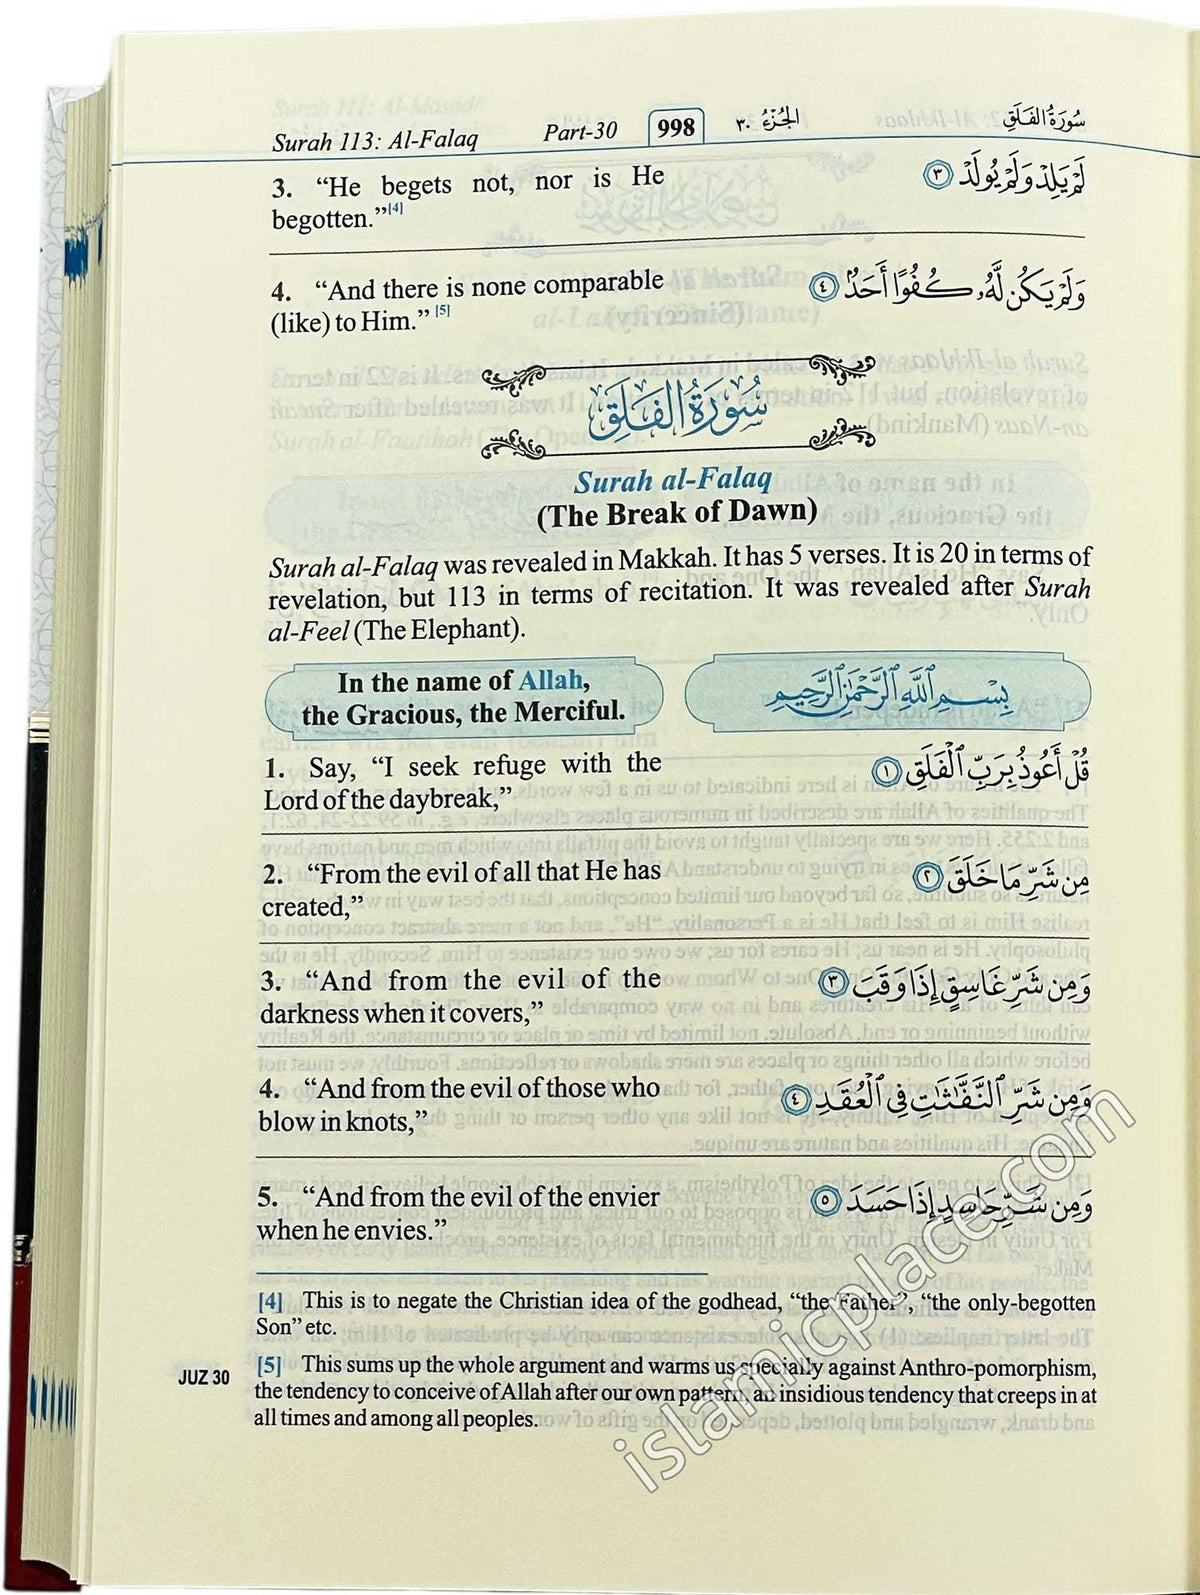 Surah 113: Al-Falaq Part-30 998 الجُزْءُ ٣٠ سُورَةُ الفَلَقِ
3. “He begets not, nor is He
begotten.”[4]
لَمْ يَلِدْ وَلَمْ يُولَدْ ٣
4. “And there is none comparable
(like) to Him.” [5]
وَلَمْ يَكُن لَّهُۥ كُفُوًا أَحَدٌۢ ٤
سُورَةُ الفَلَقِ
Surah al-Falaq
(The Break of Dawn)
Surah al-Falaq was revealed in Makkah. It has 5 verses. It is 20 in terms of
revelation, but 113 in terms of recitation. It was revealed after Surah
al-Feel (The Elephant).
In the name of Allah,
the Gracious, the Merciful.
بِسْمِ ٱللَّهِ ٱلرَّحْمَٰنِ ٱلرَّحِيمِ
1. Say, “I seek refuge with the
Lord of the daybreak,”
قُلْ أَعُوذُ بِرَبِّ ٱلْفَلَقِ ١
2. “From the evil of all that He has
created,”
مِن شَرِّ مَا خَلَقَ ٢
3. “And from the evil of the
darkness when it covers,”
وَمِن شَرِّ غَاسِقٍ إِذَا وَقَبَ ٣
4. “And from the evil of those who
blow in knots,”
وَمِن شَرِّ ٱلنَّفَّٰثَٰتِ فِى ٱلْعُقَدِ ٤
5. “And from the evil of the envier
when he envies.”
وَمِن شَرِّ حَاسِدٍ إِذَا حَسَدَ ٥
[4] This is to negate the Christian idea of the godhead, “the Father”, “the only-begotten
Son” etc.
JUZ 30
[5] This sums up the whole argument and warms us specially against Anthro-pomorphism,
the tendency to conceive of Allah after our own pattern, an insidious tendency that creeps in at
all times and among all peoples.
islamicplace.com